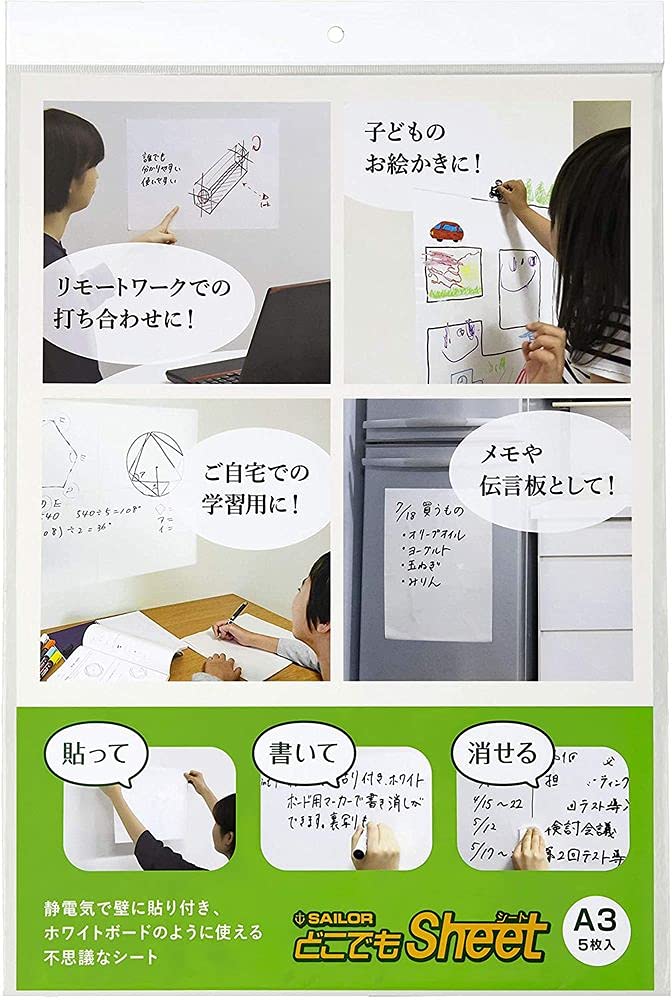 誰でも
分かりやすい
使いやすい
リモートワークでの
打ち合わせに！
子どもの
お絵かきに！
D E
540÷5=108°
÷2=36°
ア=
イ=
ご自宅での
学習用に！
メモや
伝言板として！
7/18 買うもの
・オリーブオイル
・ヨーグルト
・玉ねぎ
・みりん
貼って
書いて
貼り付き、ホワイト
ボード用マーカーで書き消しが
できます。裏写りも
消せる
担 ーティング
4/15〜22 回テスト導入
5/12 検討会議
5/17〜 第2回テスト導
静電気で壁に貼り付き、
ホワイトボードのように使える
不思議なシート
SAILOR
シート
どこでもSheet
A3
5枚入